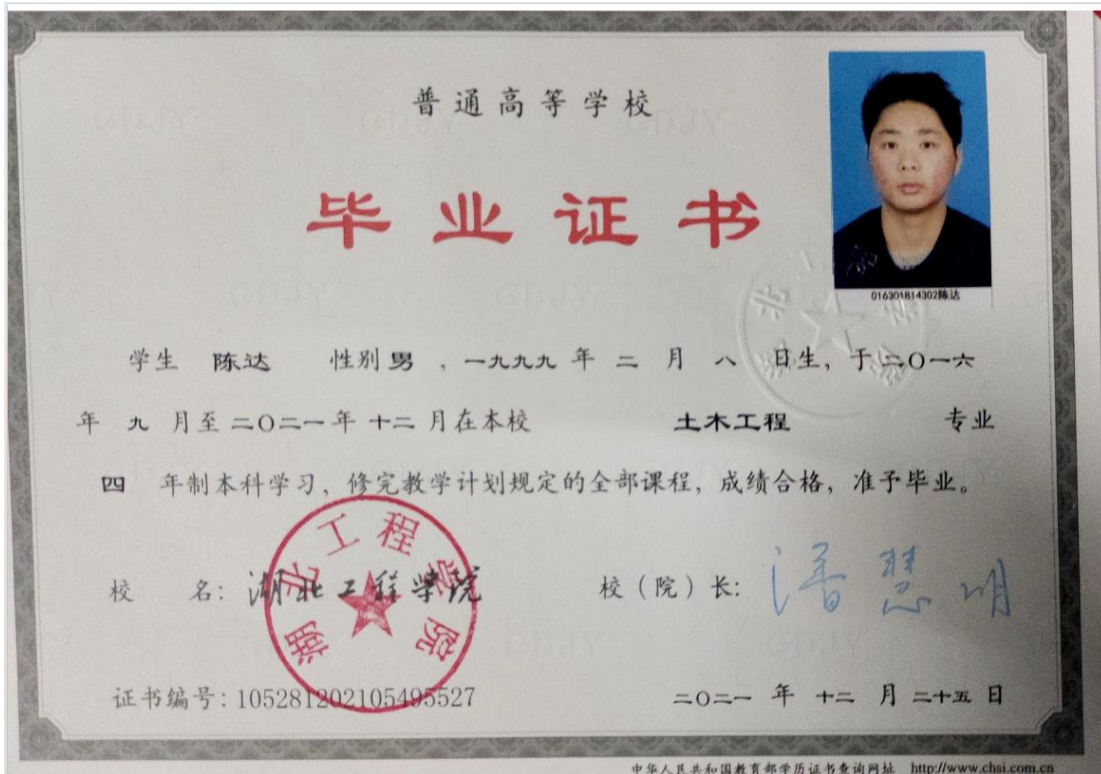 普通高等学校
毕业证书
016301814302陈达
学生 陈达 性别 男 ，一九九九 年 二 月 八 日生，于二〇一六
年 九 月至 二〇二一 年 十二 月在本校 土木工程 专业
四 年制本科学习，修完教学计划规定的全部课程，成绩合格，准予毕业。
校 名：湖北工程学院 校（院）长：潘慧明
湖北工程学院
证书编号：105281202105495527 二〇二一 年 十二 月 二十五 日
中华人民共和国教育部学历证书查询网址 http://www.chsi.com.cn